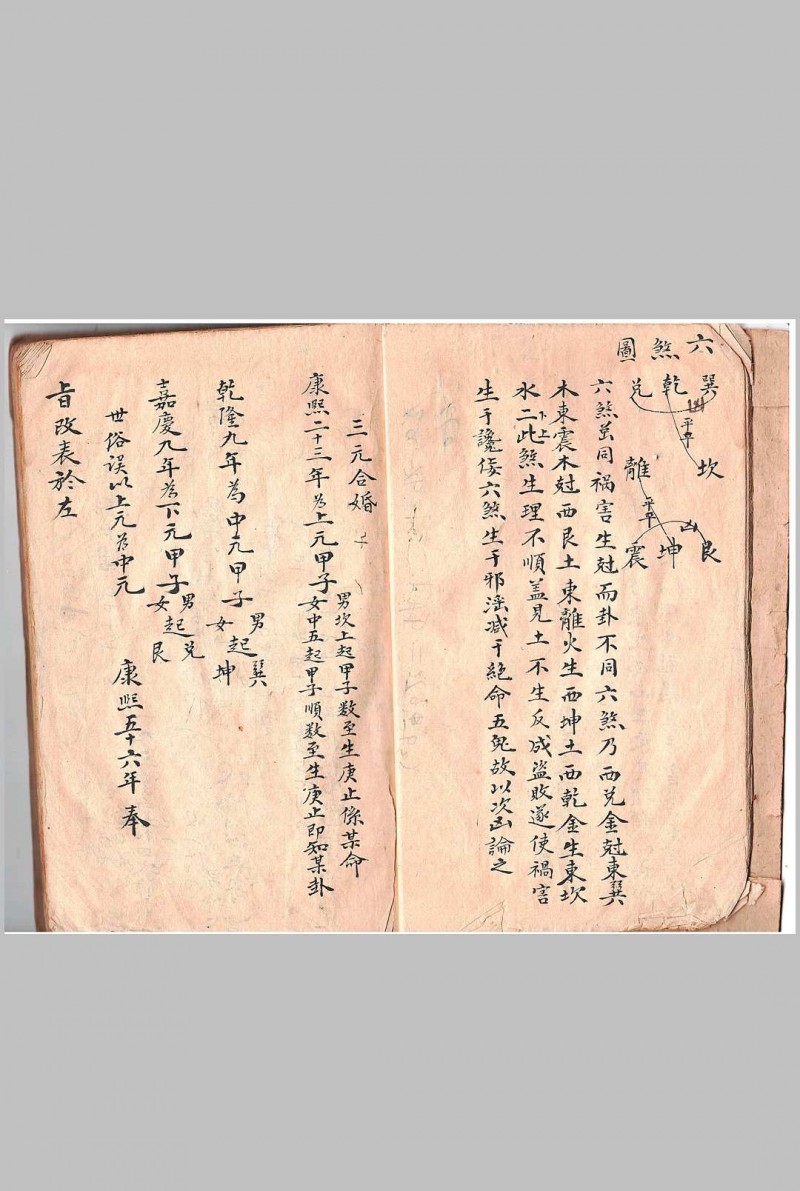 六煞圖
巽 乾 兌
凶
平平
坎 離
平平
凶
艮 坤 震
六煞並同禍害生尅而卦不同六煞乃西兌金尅東巽
木東震木尅西艮土東離火生西坤土西乾金生東坎
水二上下此煞生理不順盖見土不生反成盜敗遂使禍害
生于讒佞六煞生于邪淫减于絕命五鬼故以次凶論之
三元合婚
康熙二十三年為上元甲子 男坎上起甲子数至生庚止係某命
女中五起甲子順数至生庚止即知某卦
乾隆九年為中元甲子 男起巽
女起坤
嘉慶九年為下元甲子 男起兌
女起艮
世俗误以上元為中元 康熙五十六年奉
旨改表於左